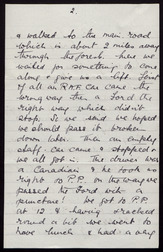 2.
& walked to the main road
which is about 2 miles away
through the forest. here we
waited for something to come
along & give us a lift. First
of all an R.A.F. car came the
wrong way then a Ford the
right way which didn't
stop. So we said we hoped
we should pass it broken
down later. Then an empty
staff car came & stopped &
we all got in. The driver was
a Canadian & he took us
right to P.P. on the way we
passed the Ford with
puncture! We got to P.P.
at 12 & having
round a bit we went to
have lunch & had a very